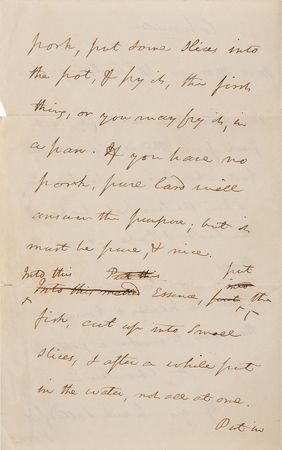 pork, put some slices into
the pot, & fry it, the first
thing, or you may fry it, in
a pan. If you have no
pork, pure lard will
answer the purpose; but it
must be pure, & nice.
Into this Put this put
Into this Essence, the
fish, cut up into small
slices, & after a while put
in the water, not all at one.
Put in